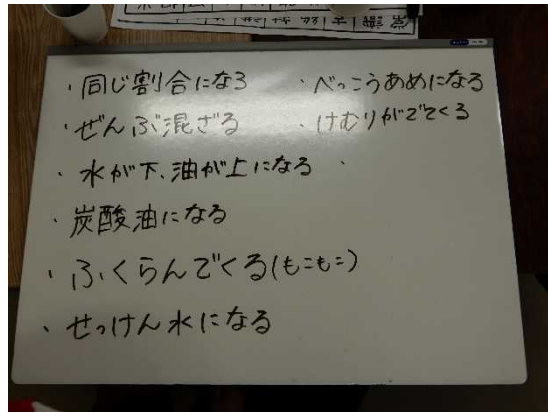 ・同じ割合になる
・ぜんぶ混ざる
・水が下、油が上になる
・炭酸油になる
・ふくらんでくる(もこもこ)
・せっけん水になる
・べっこうあめになる
・けむりがでてくる
・